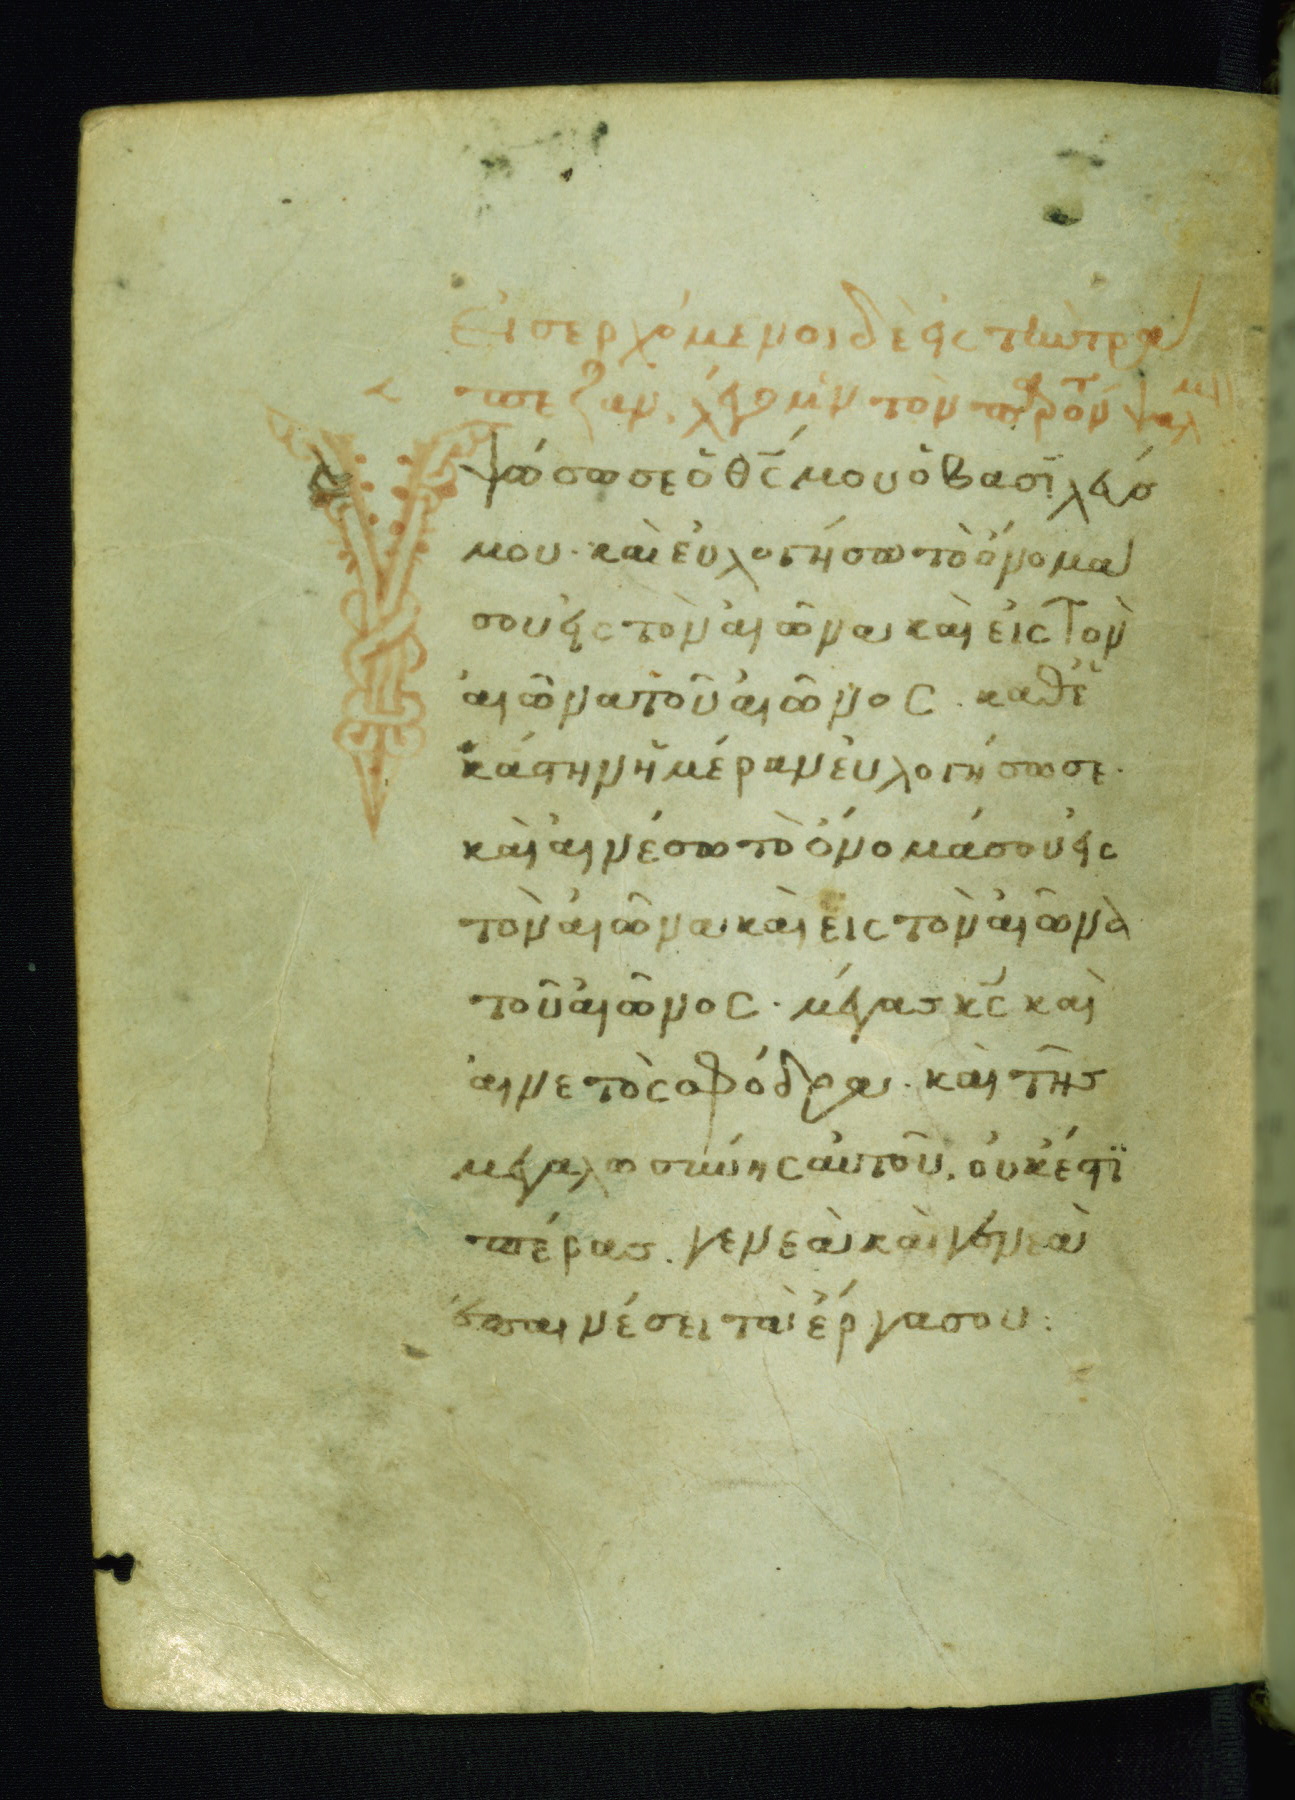 Εἰσερχόμενοι δὲ εἰς τὴν τρά
πεζαν, λέγομεν τὸν παρόν ψαλμ
Ὑψώσω σε ὁ θς μου ὁ βασιλεύσ
μου · καὶ εὐλογήσω τὸ ὄνομα
σου εἰς τὸν αἰῶνα καὶ εἰς τὸν
αἰῶνα τοῦ αἰῶνος · καθἑ
κάστην ἡμέραν εὐλογήσω σε ·
καὶ αἰνέσω τὸ ὄνομά σου εἰς
τὸν αἰῶνα καὶ εἰς τὸν αἰῶνὰ
τοῦ αἰῶνος · μέγασ κς καὶ
αἰνετὸς σφόδρα · καὶ τῆσ
μεγαλωσύνης αὐτοῦ, οὐκ ἔστϊ
πέρασ. γενεὰ καὶ γενεὰ
ἐπαινέσει τὰ ἔργα σου :